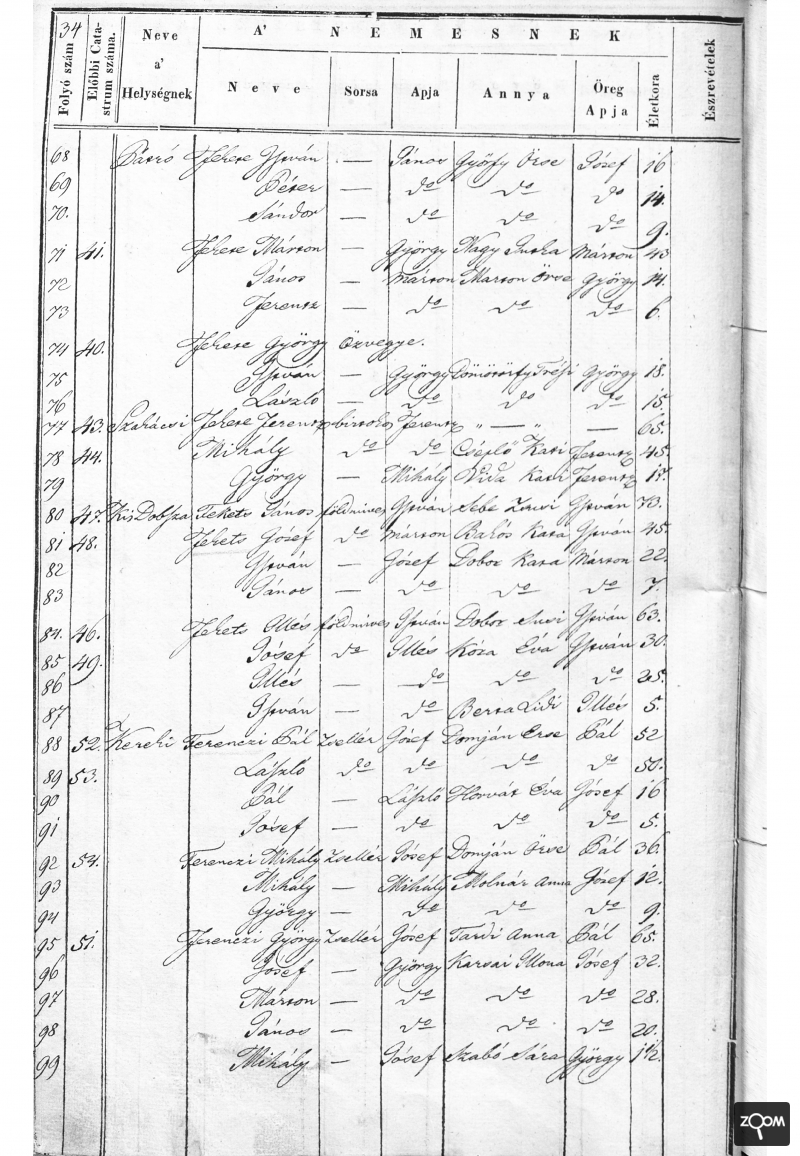 34
Folyó szám
Előbbi Catastrum száma.
Neve a' Helységnek
A' NEMESNEK
Neve Sorsa Apja Annya Öreg Apja Életkora
Észrevételek
68 Patró Fekete István — János Győrfy Örse Jósef 16
69 Péter — do do do 14.
70. Sándor — do do do 9.
71 41. Fekete Márton — György Nagy Márton 43
72 János — Márton Marton Örse György 14.
73 Ferentz — do do do 6.
74 40. Fekete György özvegye.
75 István — György Dömötörfy Trési György 18.
76 László — do do do 15
77 43. Szakácsi Fekete Ferentz birtokos Ferentz „ — „ — 65.
78 44. Mihály do do Cséplő Kati Ferentz 45.
79 György — Mihály Vida Kati Ferentz 17.
80 47. Kis Dobsza Fekets János földmives István Sebe István 73.
81 48. Fekets Jósef do Márton Bakós Kata István 45.
82 István — Jósef Dobos Kata Márton 22.
83 János — do do do 7.
84. 46. Fekets Illés földmives István Dobos Susi István 63.
85 49. Jósef do Illés Kóza Éva István 30.
86 Illés — do do do 25.
87 István — do Berta Lidi Illés 5.
88 52. Kereki Ferenczi Pál Zsellér Jósef Domján Erse Pál 52
89 53. László do do do do 50.
90 Pál — László Horvát Éva Jósef 16
91 Jósef — do do do 5.
92 54. Ferenczi Mihály Zsellér Jósef Domján Örse Pál 36
93 Mihály — Mihály Molnár Anna Jósef 12.
94 György — do do do 9.
95 51. Ferenczi György Zsellér Jósef Tardi Anna Pál 65.
96 Jósef — György Karsai Illona Jósef 32.
97 Márton — do do do 28.
98 János — do do do 20.
99 Mihály — Jósef Szabó Sára György 1½.
ZOOM